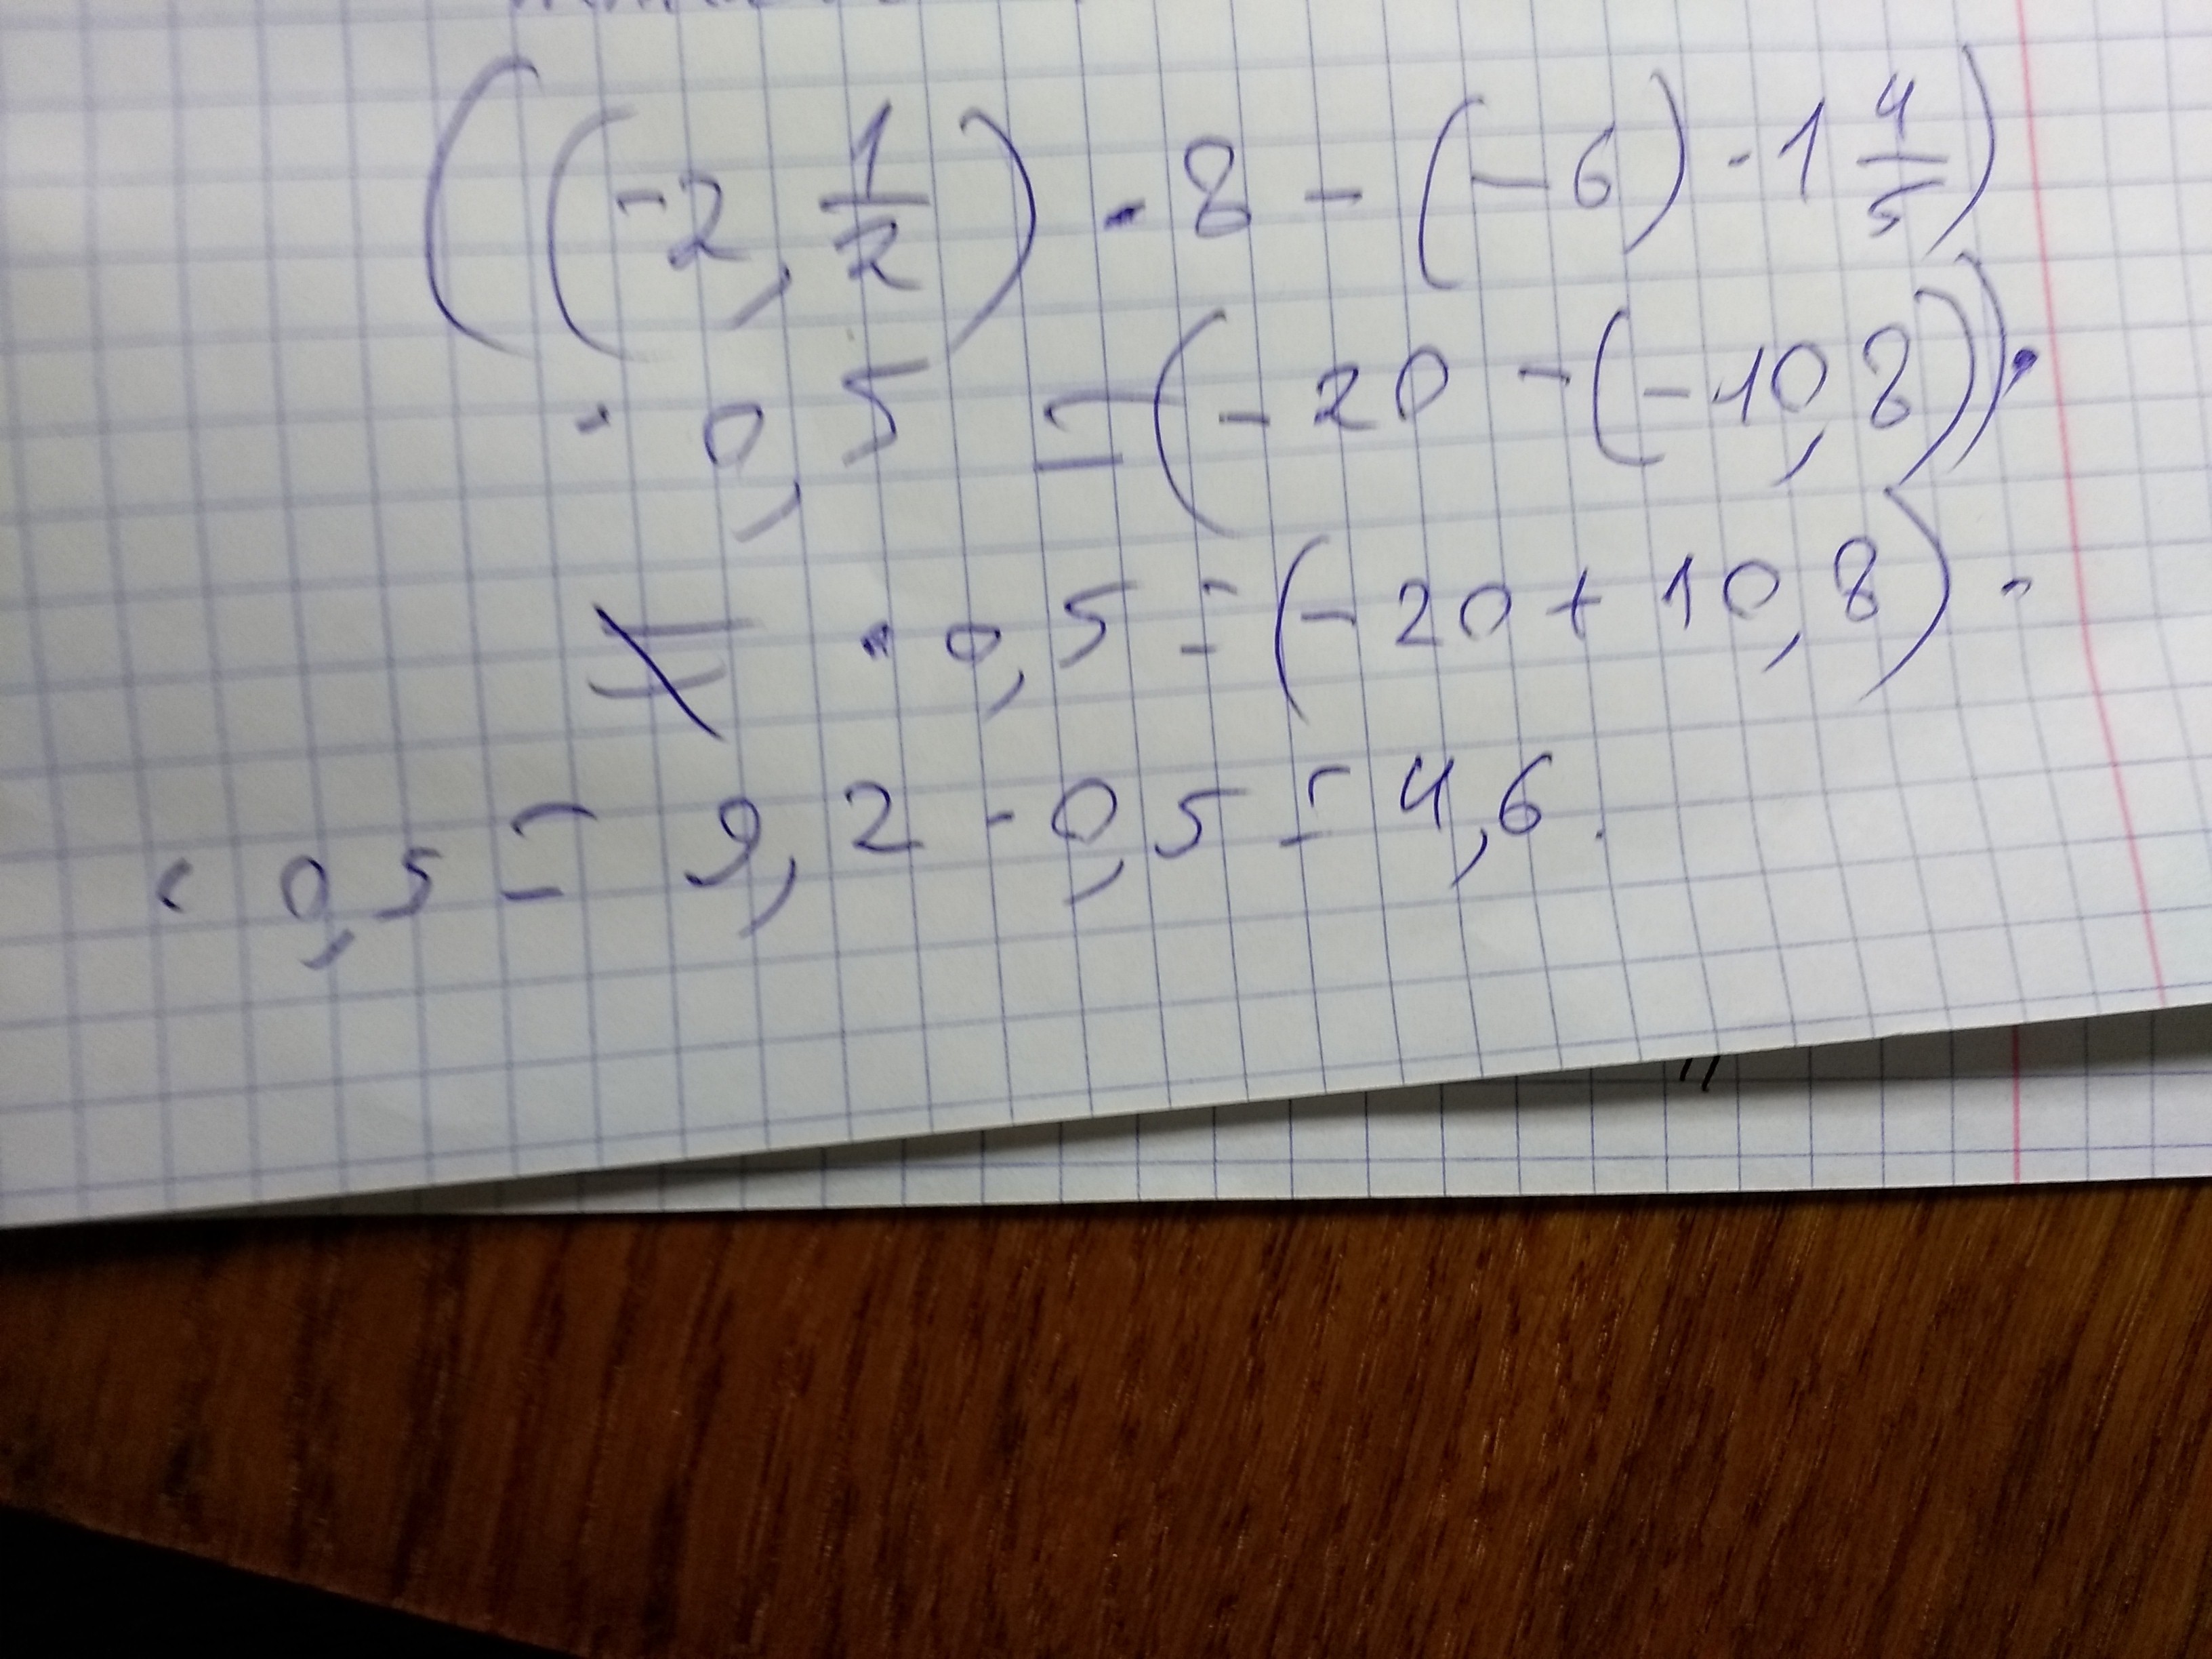 ((-2,1/2) · 8 - (-6) · 1 4/5)
· 0,5 = (-20 - (-10,8)) ·
· 0,5 = (-20 + 10,8) ·
· 0,5 = 9,2 · 0,5 = 4,6.